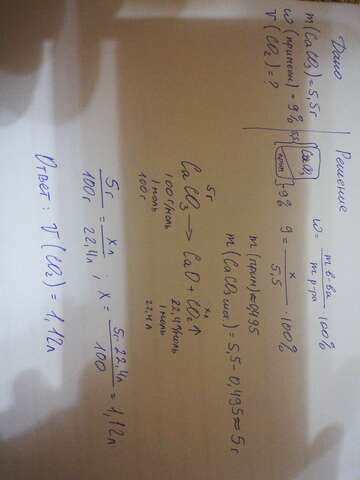 Дано
m(CaCO₃)=5,5г
ω(примеси)=9%
V(CO₂)=?
Решение
ω= m в-ва / m р-ра · 100%
CaCO₃
-9%
9= x / 5,5 · 100%
m(прим)=0,495
m(CaCO₃ чист)=5,5-0,495≈5г
5г xл
CaCO₃ → CaO + CO₂↑
100г/моль 22,4л/моль
1моль 1моль
100г 22,4л
5г / 100г = xл / 22,4л ; x = 5·22,4л / 100 = 1,12л
Ответ: V(CO₂)=1,12л